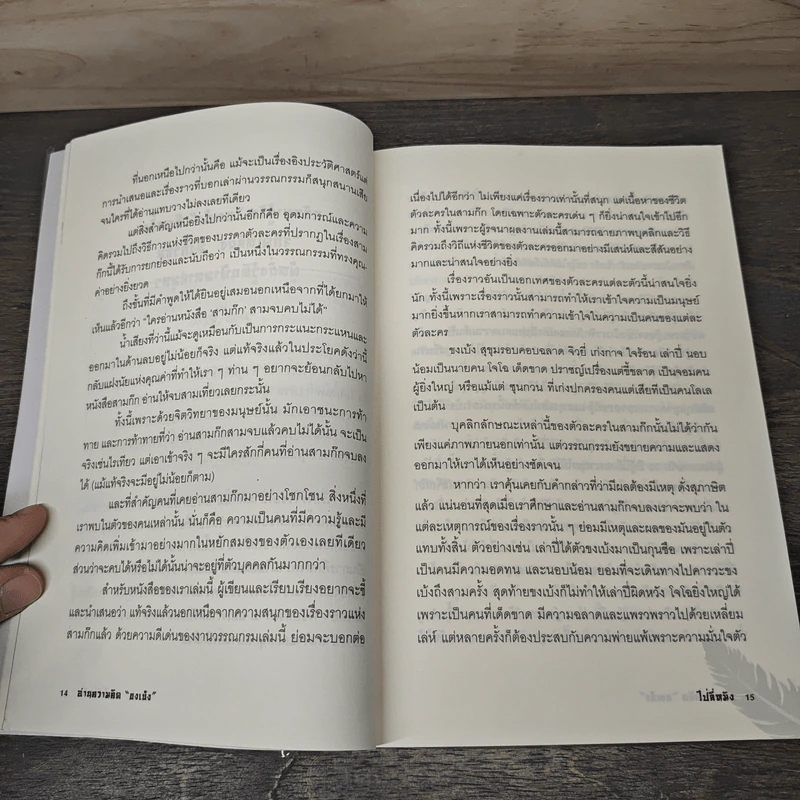 ที่นอกเหนือไปกว่านั้นคือ แม้จะเป็นเรื่องอิงประวัติศาสตร์แต่
การนำเสนอและเรื่องราวที่บอกเล่าผ่านวรรณกรรมก็สนุกสนานเสีย
จนใครที่ได้อ่านแทบวางไม่ลงเลยทีเดียว
แต่สิ่งสำคัญเหนือยิ่งไปกว่านั้นอีกก็คือ อุดมการณ์และความ
คิดรวมไปถึงวิธีการแห่งชีวิตของบรรดาตัวละครที่ปรากฏในเรื่องสาม
ก๊กนี้ได้รับการยกย่องและนับถือว่า เป็นหนึ่งในวรรณกรรมที่ทรงคุณ-
ค่าอย่างยิ่งยวด
ถึงขั้นที่มีคำพูดให้ได้ยินอยู่เสมอนอกเหนือจากที่ได้ยกมาให้
เห็นแล้วอีกว่า "ใครอ่านหนังสือ 'สามก๊ก' สามจบคบไม่ได้"
น้ำเสียงที่ว่านี้แม้จะดูเหมือนกับเป็นการกระแนะกระแหนและ
ออกมาในด้านลบอยู่ไม่น้อยก็จริง แต่แท้จริงแล้วในประโยคดังว่านี้
กลับแฝงนัยแห่งคุณค่าที่ทำให้เรา ๆ ท่าน ๆ อยากจะย้อนกลับไปหา
หนังสือสามก๊ก อ่านให้จบสามเที่ยวเลยกระนั้น
ทั้งนี้เพราะด้วยจิตวิทยาของมนุษย์นั้น มักเอาชนะการท้า
ทาย และการท้าทายที่ว่า อ่านสามก๊กสามจบแล้วคบไม่ได้นั้น จะเป็น
จริงเช่นไรเทียว แต่เอาเข้าจริง ๆ จะมีใครสักกี่คนที่อ่านสามก๊กจบลง
ได้ (แม้แท้จริงจะมีอยู่ไม่น้อยก็ตาม)
และที่สำคัญคนที่เคยอ่านสามก๊กมาอย่างโชกโชน สิ่งหนึ่งที่
เราพบในตัวของคนเหล่านั้น นั่นก็คือ ความเป็นคนที่มีความรู้และมี
ความคิดเพิ่มเข้ามาอย่างมากในหยักสมองของตัวเองเลยทีเดียว
ส่วนว่าจะคบได้หรือไม่ได้นั้นน่าจะอยู่ที่ตัวบุคคลกันมากกว่า
สำหรับหนังสือของเราเล่มนี้ ผู้เขียนและเรียบเรียงอยากจะชี้
และนำเสนอว่า แท้จริงแล้วนอกเหนือจากความสนุกของเรื่องราวแห่ง
สามก๊กแล้ว ด้วยความดีเด่นของงานวรรณกรรมเล่มนี้ ย่อมจะบอกต่อ
14 อ่านความคิด "ขงเบ้ง"
เนื่องไปได้อีกว่า ไม่เพียงแค่เรื่องราวเท่านั้นที่สนุก แต่เนื้อหาของชีวิต
ตัวละครในสามก๊ก โดยเฉพาะตัวละครเด่น ๆ ก็ยิ่งน่าสนใจเข้าไปอีก
มาก ทั้งนี้เพราะผู้รจนาผลงานเล่มนี้สามารถฉายภาพบุคลิกและวิธี
คิดรวมถึงวิถีแห่งชีวิตของตัวละครออกมาอย่างมีเสน่ห์และสีสันอย่าง
มากและน่าสนใจอย่างยิ่ง
เรื่องราวอันเป็นเอกเทศของตัวละครแต่ละตัวนี้น่าสนใจยิ่ง
นัก ทั้งนี้เพราะเรื่องราวนั้นสามารถทำให้เราเข้าใจความเป็นมนุษย์
มากยิ่งขึ้นหากเราสามารถทำความเข้าใจในความเป็นคนของแต่ละ
ตัวละคร
ขงเบ้ง สุขุมรอบคอบฉลาด จิวยี่ เก่งกาจ ใจร้อน เล่าปี่ นอบ
น้อมเป็นนายคน โจโฉ เด็ดขาด ปราชญ์เปรื่องแต่ขี้ขลาด เป็นจอมคน
ผู้ยิ่งใหญ่ หรือแม้แต่ ซุนกวน ที่เก่งปกครองคนแต่เสียทีเป็นคนโลเล
เป็นต้น
บุคลิกลักษณะเหล่านี้ของตัวละครในสามก๊กนั้นไม่ได้ว่ากัน
เพียงแค่ภาพภายนอกเท่านั้น แต่วรรณกรรมยังขยายความและแสดง
ออกมาให้เราได้เห็นอย่างชัดเจน
หากว่า เราคุ้นเคยกับคำกล่าวที่ว่ามีผลต้องมีเหตุ ดั่งสุภาษิต
แล้ว แน่นอนที่สุดเมื่อเราศึกษาและอ่านสามก๊กจบลงเราจะพบว่า ใน
แต่ละเหตุการณ์ของเรื่องราวนั้น ๆ ย่อมมีเหตุและผลของมันอยู่ในตัว
แทบทั้งสิ้น ตัวอย่างเช่น เล่าปี่ได้ตัวขงเบ้งมาเป็นกุนซือ เพราะเล่าปี่
เป็นคนมีความอดทน และนอบน้อม ยอมที่จะเดินทางไปคารวะขง
เบ้งถึงสามครั้ง สุดท้ายขงเบ้งก็ไม่ทำให้เล่าปี่ผิดหวัง โจโฉยิ่งใหญ่ได้
เพราะเป็นคนที่เด็ดขาด มีความฉลาดและแพรวพราวไปด้วยเหลี่ยม
เล่ห์ แต่หลายครั้งก็ต้องประสบกับความพ่ายแพ้เพราะความมั่นใจตัว
ไป๋ลี่หมิง 15